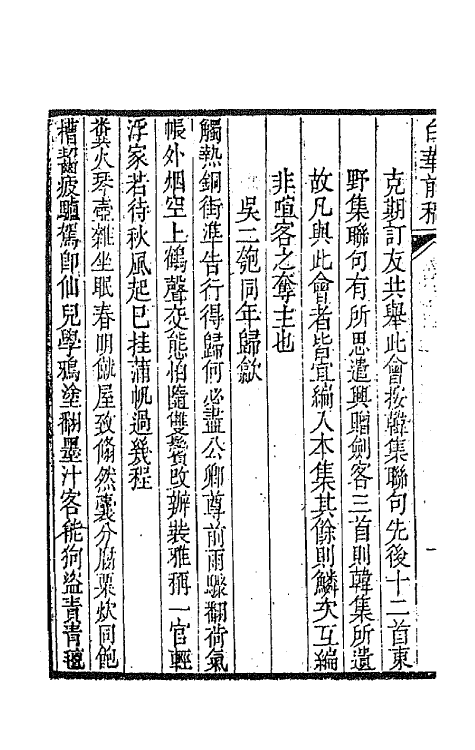 白華前稿
克期訂友共舉此會按韓集聯句先後十二首東
野集聯句有所思遣興贈劍客三首則韓集所遺
故凡與此會者皆宜編入本集其餘則鱗次互編
非喧客之奪主也
吳二匏同年歸歙
觸熱銅街準告行得歸何必盡公卿尊前雨驟翻荷氣
帳外烟空上鶴聲交態怕隨雙鬢改辦裝雅稱一官輕
浮家若待秋風起已挂蒲帆過幾程
糞火琴壺雜坐眠春明僦屋致翛然囊分腐粟炊同飽
槽齧疲驢駕即仙兒學鴉塗翻墨汁客能狗盜責青氊